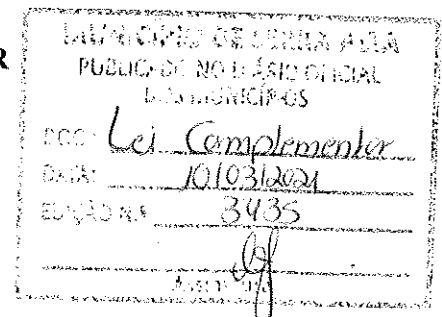 R
MUNICÍPIO DE SERRA ALTA
PUBLICADO NO DIÁRIO OFICIAL
DOS MUNICÍPIOS
DOC: Lei Complementar
DATA: 10/03/2021
EDIÇÃO N.º 3435